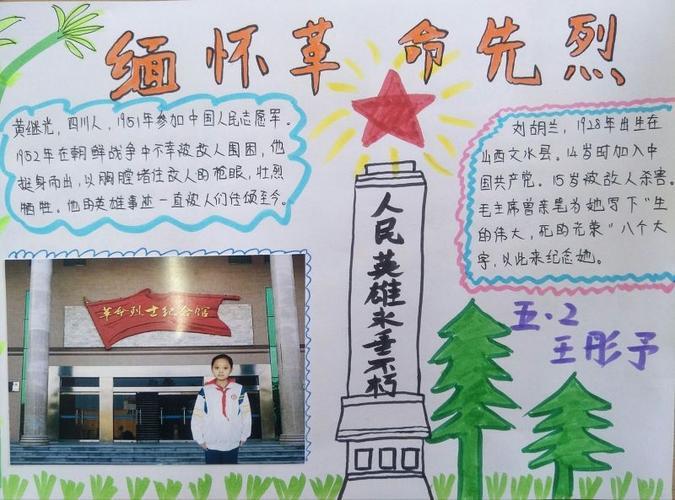 缅怀革命先烈
黄继光，四川人，1951年参加中国人民志愿军。
1952年在朝鲜战争中不幸被敌人围困，他
挺身而出，以胸膛堵住敌人的枪眼，壮烈
牺牲。他的英雄事迹一直被人们传颂至今。
刘胡兰，1928年出生在
山西文水县。14岁时加入中
国共产党。15岁被敌人杀害。
毛主席曾亲笔为她写下"生
的伟大，死的光荣"八个大
字，以此来纪念她。
人民英雄永垂不朽
革命烈士纪念馆
五·2
王彤予